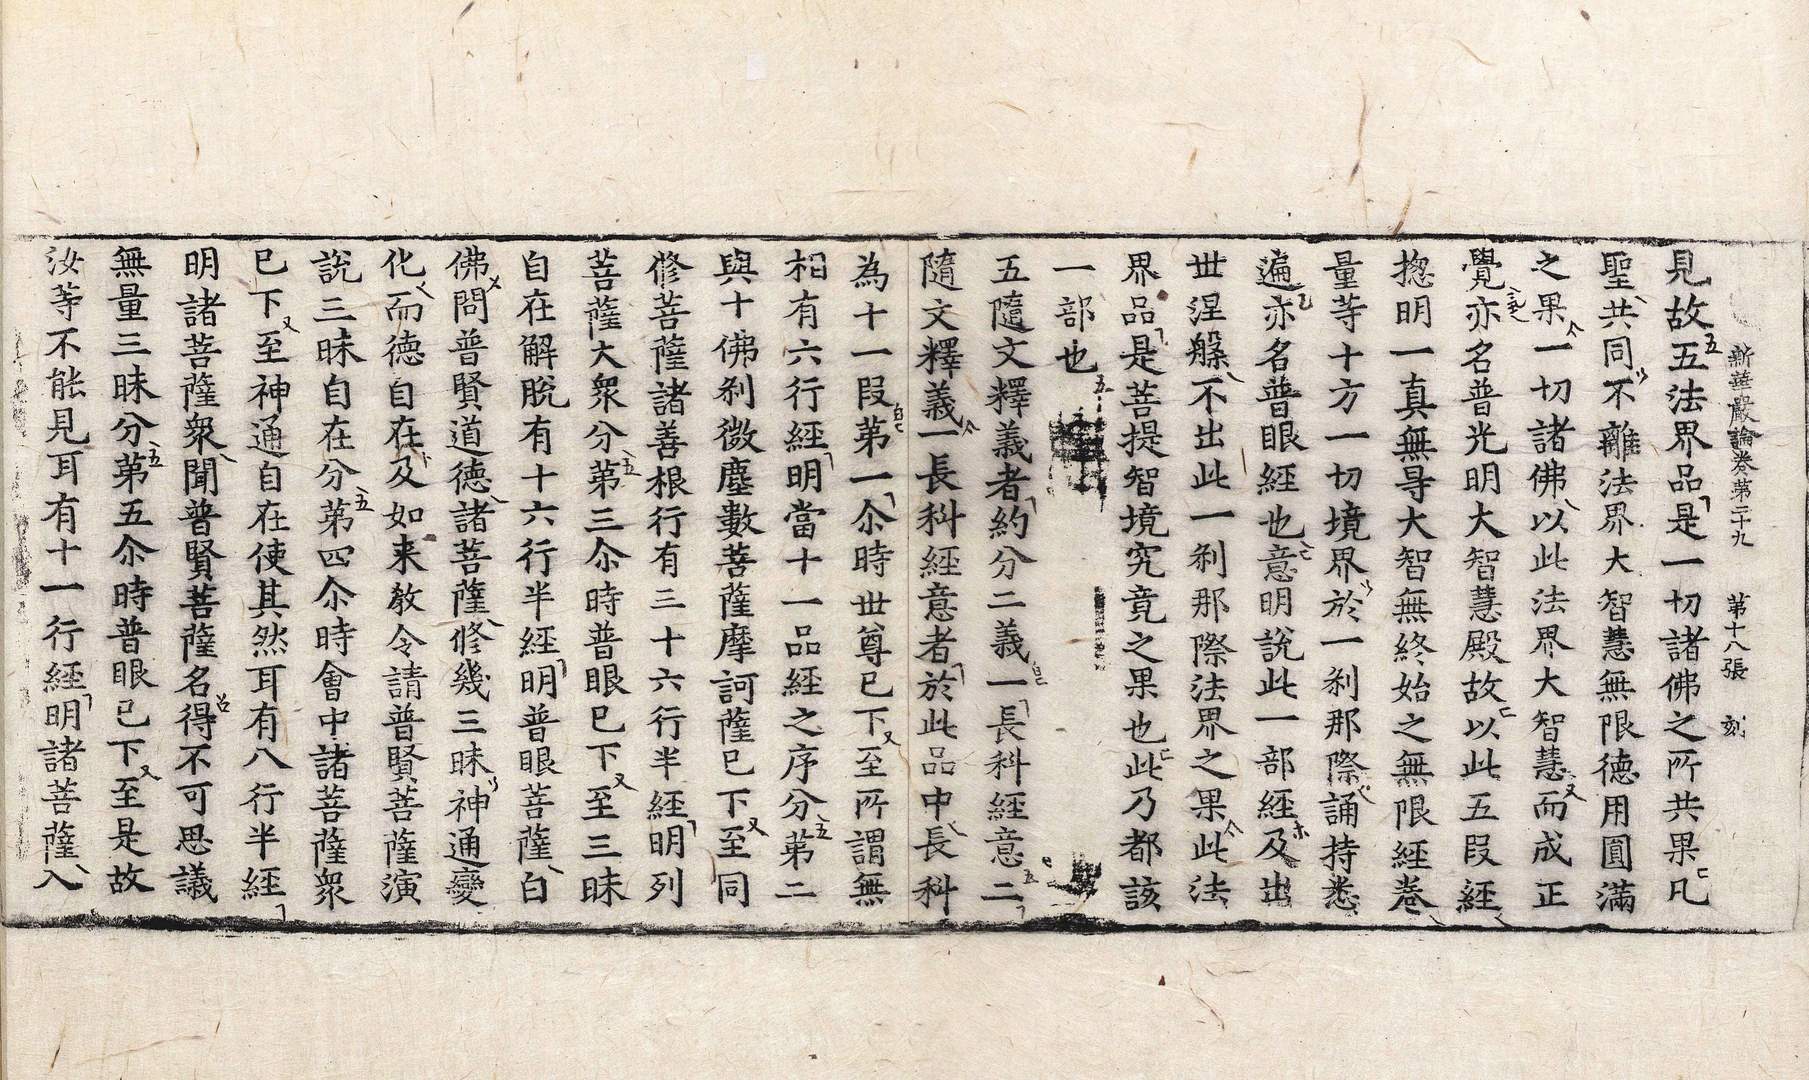 新華嚴論卷第二十九 第十八張 刻
見故五法界品是一切諸佛之所共果凡
聖共同不離法界大智慧無限德用圓滿
之果一切諸佛以此法界大智慧而成正
覺亦名普光明大智慧殿故以此五段經
揔明一真無㝵大智無終始之無限經卷
量等十方一切境界於一剎那際誦持悉
遍亦名普眼經也意明說此一部經及出
世涅槃不出此一剎那際法界之果此法
界品是菩提智境究竟之果也此乃都該
一部也
五隨文釋義者約分二義一長科經意二
隨文釋義一長科經意者於此品中長科
為十一段第一尒時世尊已下至所謂無
相有六行經明當十一品經之序分第二
與十佛剎微塵數菩薩摩訶薩已下至同
修菩薩諸善根行有三十六行半經明列
菩薩大衆分第三尒時普眼已下至三昧
自在解脫有十六行半經明普眼菩薩白
佛問普賢道德諸菩薩修幾三昧神通變
化而德自在及如来教令請普賢菩薩演
說三昧自在分第四尒時會中諸菩薩衆
已下至神通自在使其然耳有八行半經
明諸菩薩衆聞普賢菩薩名得不可思議
無量三昧分第五尒時普眼已下至是故
汝等不能見耳有十一行經明諸菩薩入